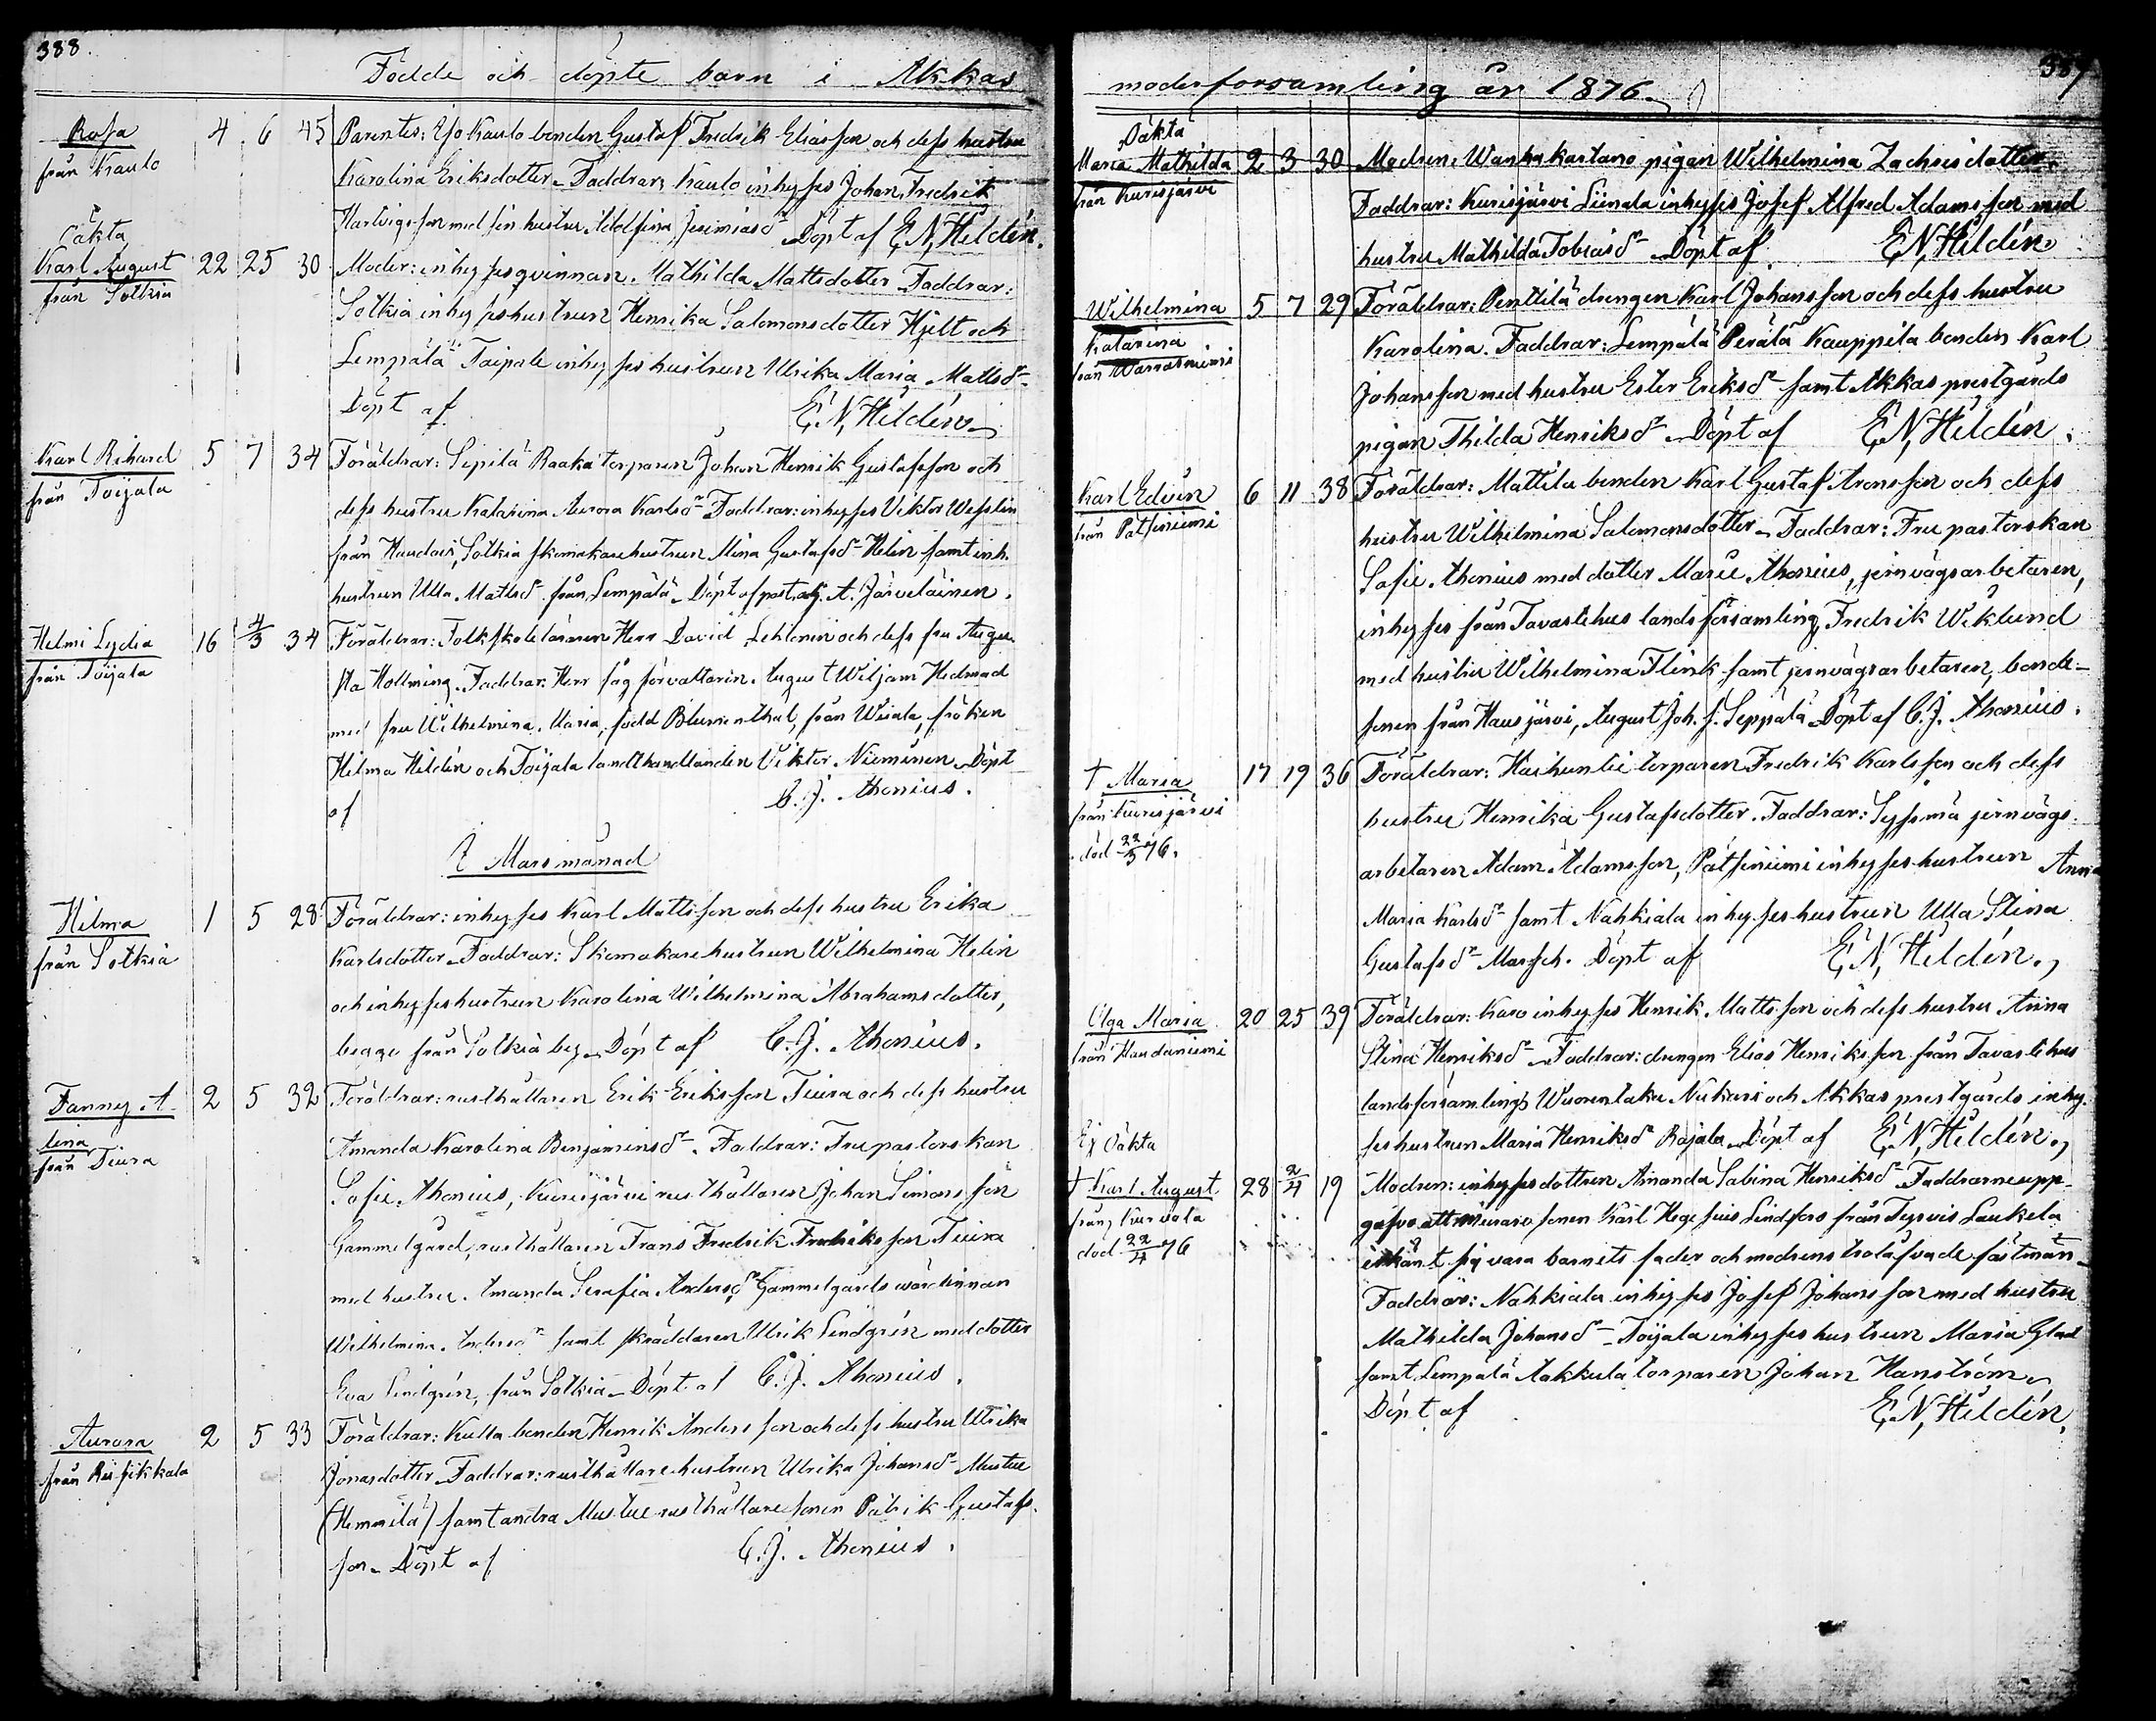 388.
Födde och döpte barn i Akkas
Rosa 4 6 45 Parentes: Yso Kaulo bonden Gustaf Fredrik Eliasson och dess hustru
från Kaulo Karolina Eriksdotter. Faddrar: Kaulo inhyses Johan Fredrik
Hartvigsson med sin hustru Adolfina Jeremiasdr Döpt af E. N. Hildén.
Oäkta
Karl August 22 25 30 Moder: inhysesqvinnan Mathilda Mattsdotter Faddrar:
från Sotkia Sotkia inhyseshustrun Henrika Salomonsdotter Hjelt och
Lempälä Taipale inhyses hustrun Ulrika Maria Mattsdr
Döpt af E. N. Hildén
Karl Rikard 5 7 34 Föräldrar: Sepilä Raaka torparen Johan Henrik Gustafsson och
från Toijala dess hustru Katarina Aurora Karlsdr Faddrar: inhyses Viktor Wesslin
från Haudois, Sotkia skomakarehustrun Mina Gustafsdr Helin samt inh.
hustrun Ulla Mattsdr från Lempälä. Döpt af past. adj. A. Järveläinen.
Helmi Lydia 16 4/3 34 Föräldrar: Folkskoleläraren Herr David Lehtonii och dess fru Augu-
från Toijala sta Hollming. Faddrar: Herr sågförvaltaren August Wiljam Hedman
med fru Wilhelmina Maria, född Blumenthal, från Wiiala, fröken
Hilma Hildén och Toijala landthandlanden Viktor Nieminen. Döpt
af C. J. Athenius.
I Mars månad
Hilma 1 5 28 Föräldrar: inhyses Karl Mattsson och dess hustru Erika
från Sotkia Karlsdotter. Faddrar: Skomakarehustrun Wilhelmina Helin
och inhyseshustrun Karolina Wilhelmina Abrahamsdotter,
begge från Sotkia by. Döpt af C. J. Athenius.
Fanny A- 2 5 32 Föräldrar: rusthållaren Erik Eriksson Tiura och dess hustru
lina
från Tiura Amanda Karolina Benjaminsdr. Faddrar: Fru pastorskan
Sofie Athenius, Kurisjärvi rusthållaren Johan Simonsson
Gammelgård, rusthållaren Frans Fredrik Fredriksson Tiura
med hustru Amanda Serafia Andersdr Gammelgårds wärdinnan
Wilhelmina Andersdr samt skräddaren Ulrik Lindgrén med dotter
Eva Lindgrén, från Sotkia. Döpt af C. J. Athenius.
Aurora 2 5 33 Föräldrar: Kulla bonden Henrik Andersson och dess hustru Ulrika
från Risikkala Jonasdotter. Faddrar: rusthållarehustrun Ulrika Johansdr Mustue
(Hemmilä) samt andra Mustue rusthållaresonen Patrik Gustafs-
son. Döpt af C. J. Athenius.
389
moderförsamling år 1876.
Oäkta
Maria Mathilda 2 3 30 Modren: Wanhakartano pigan Wilhelmina Zachrisdotter.
från Kurisjärvi Faddrar: Kurisjärvi Liimala inhyses Josef Alfred Adamsson med
hustru Mathilda Tobiasdr Döpt af E. N. Hildén.
Wilhelmina 5 7 29 Föräldrar: Penttilä drengen Karl Johansson och dess hustru
Katarina Karolina. Faddrar: Lempälä Perälä Kauppila bonden Karl
från Warrasniemi Johansson med hustru Ester Eriksdr samt Akkas prestgårds
pigan Thilda Henriksdr Döpt af E. N. Hildén.
Karl Edvin 6 11 38 Föräldrar: Mattila bonden Karl Gustaf Aronsson och dess
från Patsniemi hustru Wilhelmina Salomonsdotter. Faddrar: Fru pastorskan
Sofie Athenius med dotter Marie Athenius, jernvägsarbetaren,
inhyses från Tavastehus landsförsamling Fredrik Wiklund
med hustru Wilhelmina Flink samt jernvägsarbetaren, bonde-
sonen från Hausjärvi, August Joh. s. Seppälä Döpt af C. J. Athenius.
† Maria 17 19 36 Föräldrar: Haihuntie torparen Fredrik Karlsson och dess
från Kurisjärvi hustru Henrika Gustafsdotter. Faddrar: Syssmä jernvägs-
död 22/3 76. arbetaren Adam Adamsson, Patsniemi inhyseshustrun Anna
Maria Karlsdr samt Nahkiala inhyseshustrun Ulla Stina
Gustafsdr Marsch. Döpt af E. N. Hildén.
Olga Maria 20 25 39 Föräldrar: Karo inhyses Henrik Mattsson och dess hustru Anna
från Haudaniemi Stina Henriksdr Faddrar: drengen Elias Henriksson från Tavastehus
landsförsamlings Wuorentaka Nukari och Akkas prestgårds inhy-
seshustrun Maria Henriksdr Rajala. Döpt af E. N. Hildén.
Ej Oäkta
† Karl August 28 2/4 19 Modren: inhysesdottren Amanda Sabina Henriksdr Faddrarne upp-
från Kurvola gåfvo att muraresonen Karl Hegesius Lindfors från Tyrvis Laukela
död 22/4 76 erkänt sig vara barnets fader och modrens trolåfvade fästman
Faddrar: Nahkiala inhyses Josef Johansson med hustru
Mathilda Johansdr Toijala inhyseshustrun Maria Glad
samt Lempälä Aakkula torparen Johan Hanström.
Döpt af E. N. Hildén.